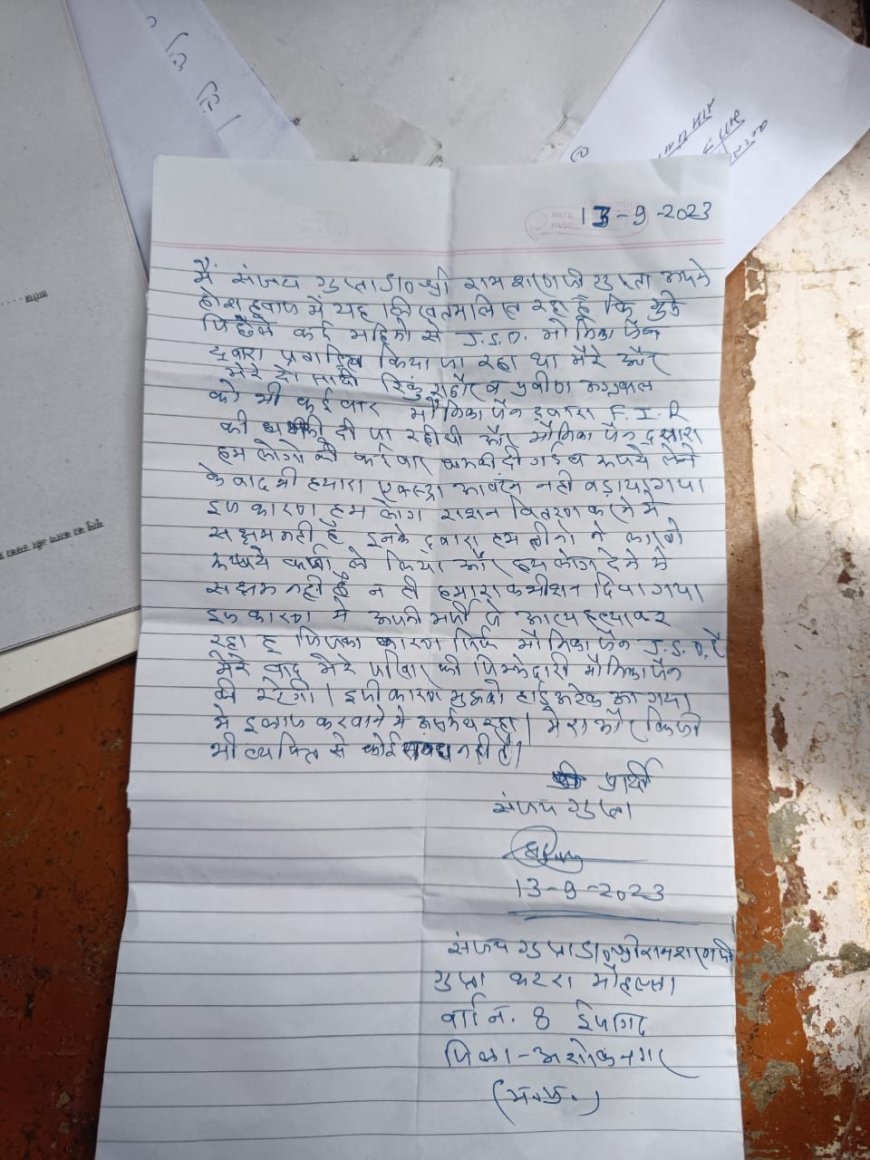 13-9-2023
मैं संजय गुप्ता S/० श्री रामशरणजी गुप्ता अपने
होश हवाश में यह कि रहा हूँ कि मुझे
पिछले कई महिनो से J.S.O. मौमिका जैन
द्वारा प्रताडित किया जा रहा था मेरे और
मेरे दो साथी व प्रवीण अग्रवाल
को भी कई वार मौमिका जैन द्वारा F.I.R
की धमकी दी जा रही थी और मौमिका जैन द्वारा
हम लोगो को कई वार धमकी दी गई व रूपये लेने
के वाद भी हमारा एक्स्ट्रा आवंटन नही वड़ाया गया
इस कारण हम लोग राशन वितरण करने में
सक्षम नही है इनके द्वारा हम तीनो ने लाखो
रूपये कर्जा ले लिया और हम लोग देने मे
सक्षम नही है न ही हमारा कमीशन दिया गया
इस कारण मे अपनी मर्जी से आत्महत्या कर
रहा हू जिसका कारण सिर्फ मौमिका जैन J.S.O. है
मेरे वाद मेरे परिवार की जिम्मेदारी मौमिका जैन
की रहेगी। इसी कारण मुझको हार्ड अटेक आ गया
मे इलाज करवाने मे असमर्थ रहा। मेरा और किसी
भी व्यक्ति से कोई संवध नही है।
प्रार्थी
संजय गुप्ता
13-9-2023
संजय गुप्ता S/० श्री रामशरणजी
गुप्ता कटरा मोहल्ला
वार्ड नं. 8 ईसागढ
जिला - अशोकनगर
(म.प्र.)